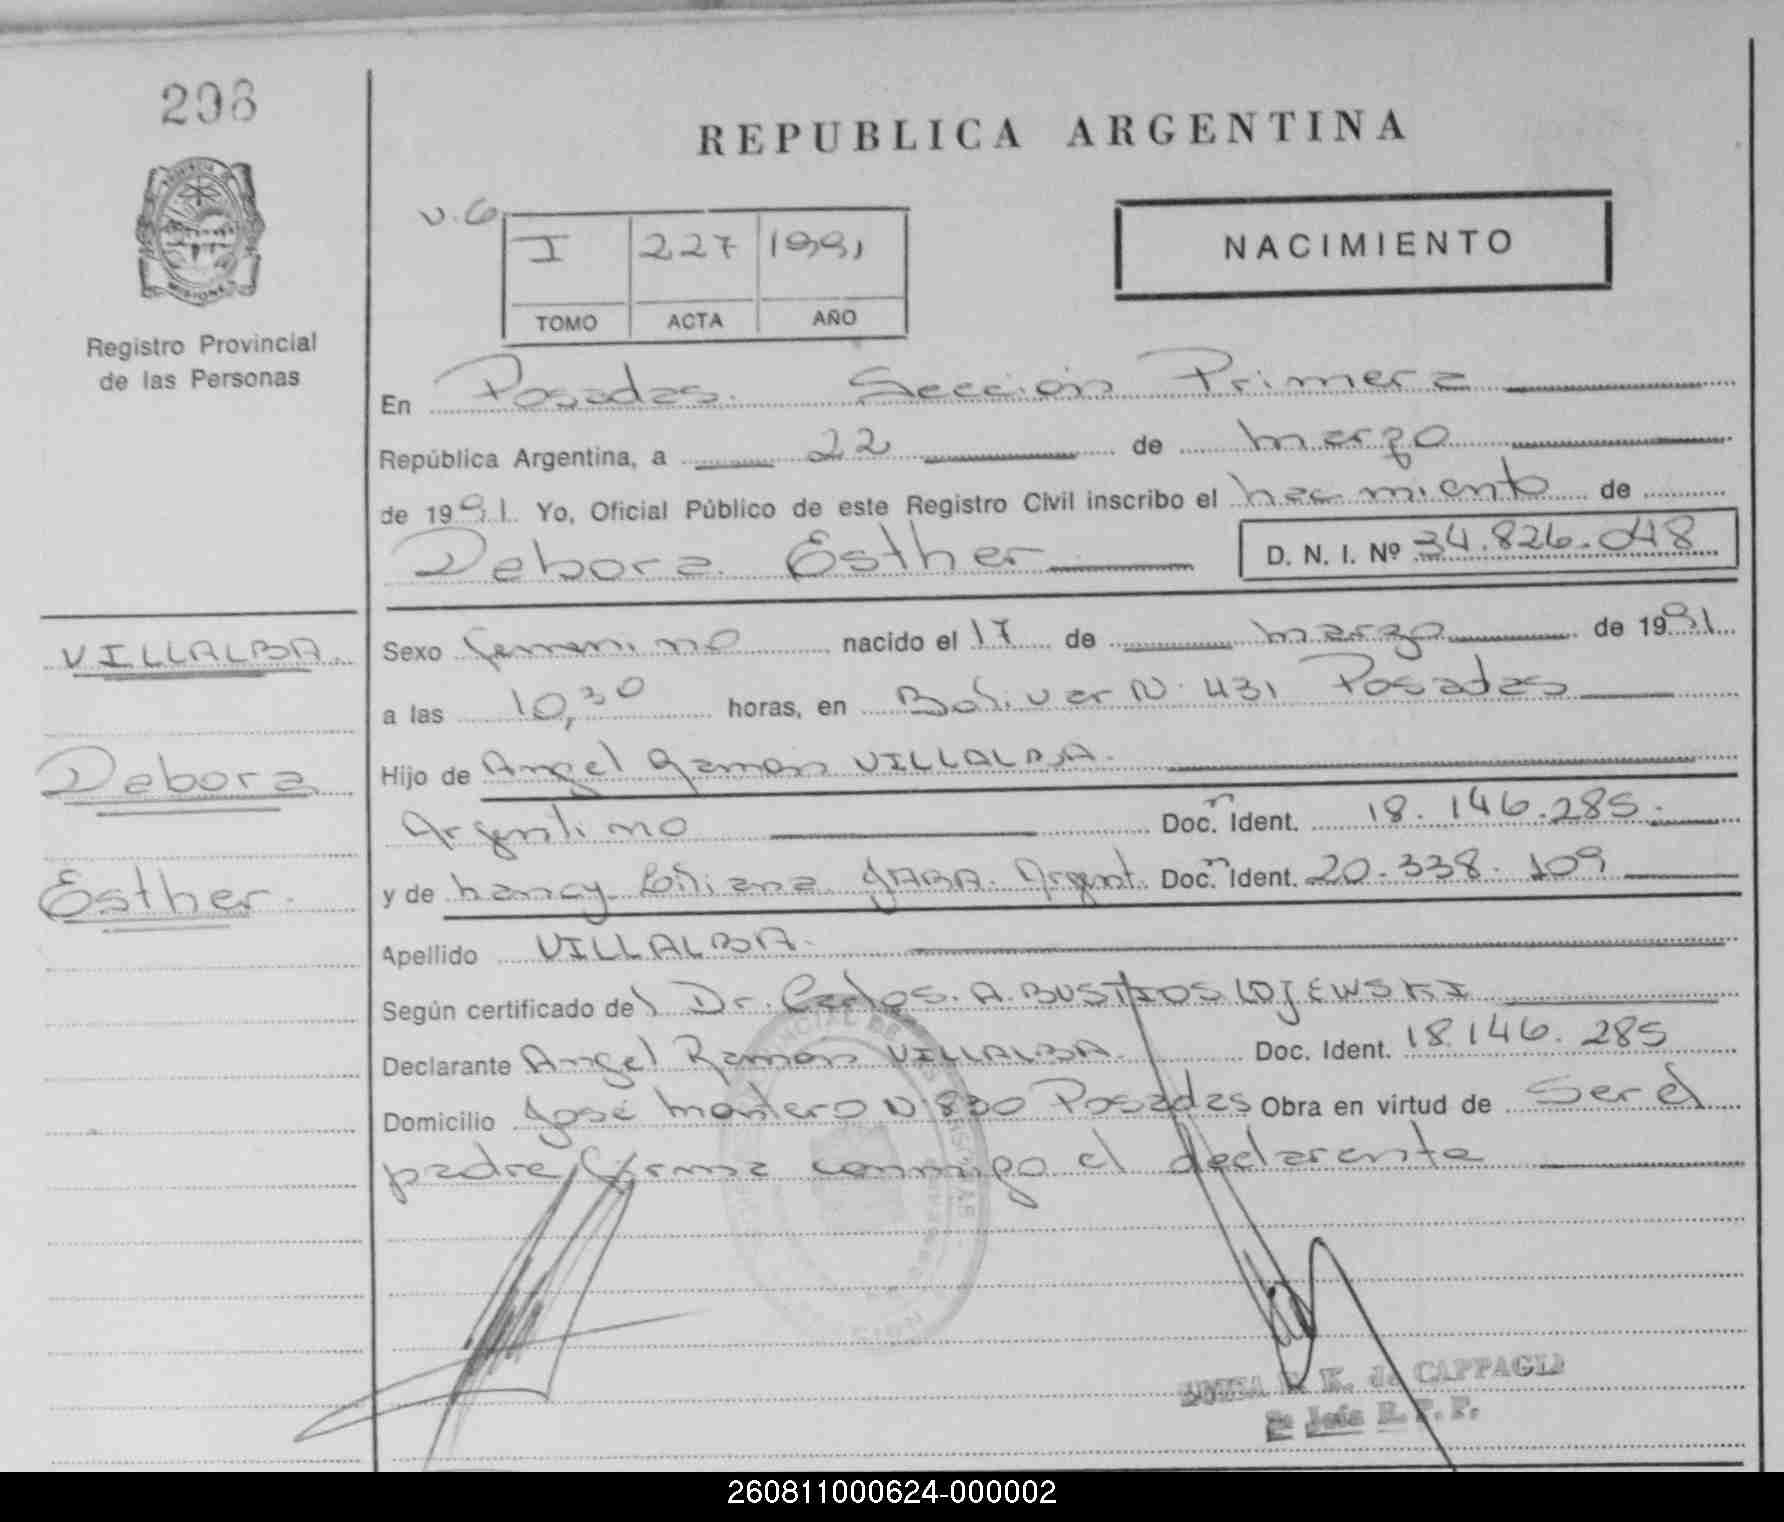 298
REPUBLICA ARGENTINA
PROVINCIA DE
MISIONES
Registro Provincial
de las Personas
NACIMIENTO
I 227 1991
TOMO ACTA AÑO
En Posadas. Sección Primera
República Argentina, a 22 de marzo
de 1991. Yo, Oficial Público de este Registro Civil inscribo el nacimiento de
Debora Esther D. N. I. Nº 34.826.048
VILLALBA
Debora
Esther
Sexo femenino nacido el 17 de marzo de 1991
a las 10,30 horas, en Bolivar N. 431 Posadas
Hijo de Angel Ramon VILLALBA.
Argentino Doc. Ident. 18.146.285.
y de Nancy Liliana JARA. Argent. Doc. Ident. 20.338.109
Apellido VILLALBA.
Según certificado del Dr. Carlos. A. BUSTIOS LOJEWSKI
Declarante Angel Ramon VILLALBA. Doc. Ident. 18.146.285
Domicilio José Montero N 830 Posadas Obra en virtud de Ser el
padre firma conmigo el declarante
K. de CAPPAGLI
2a Jefa R. P. P.
260811000624-000002